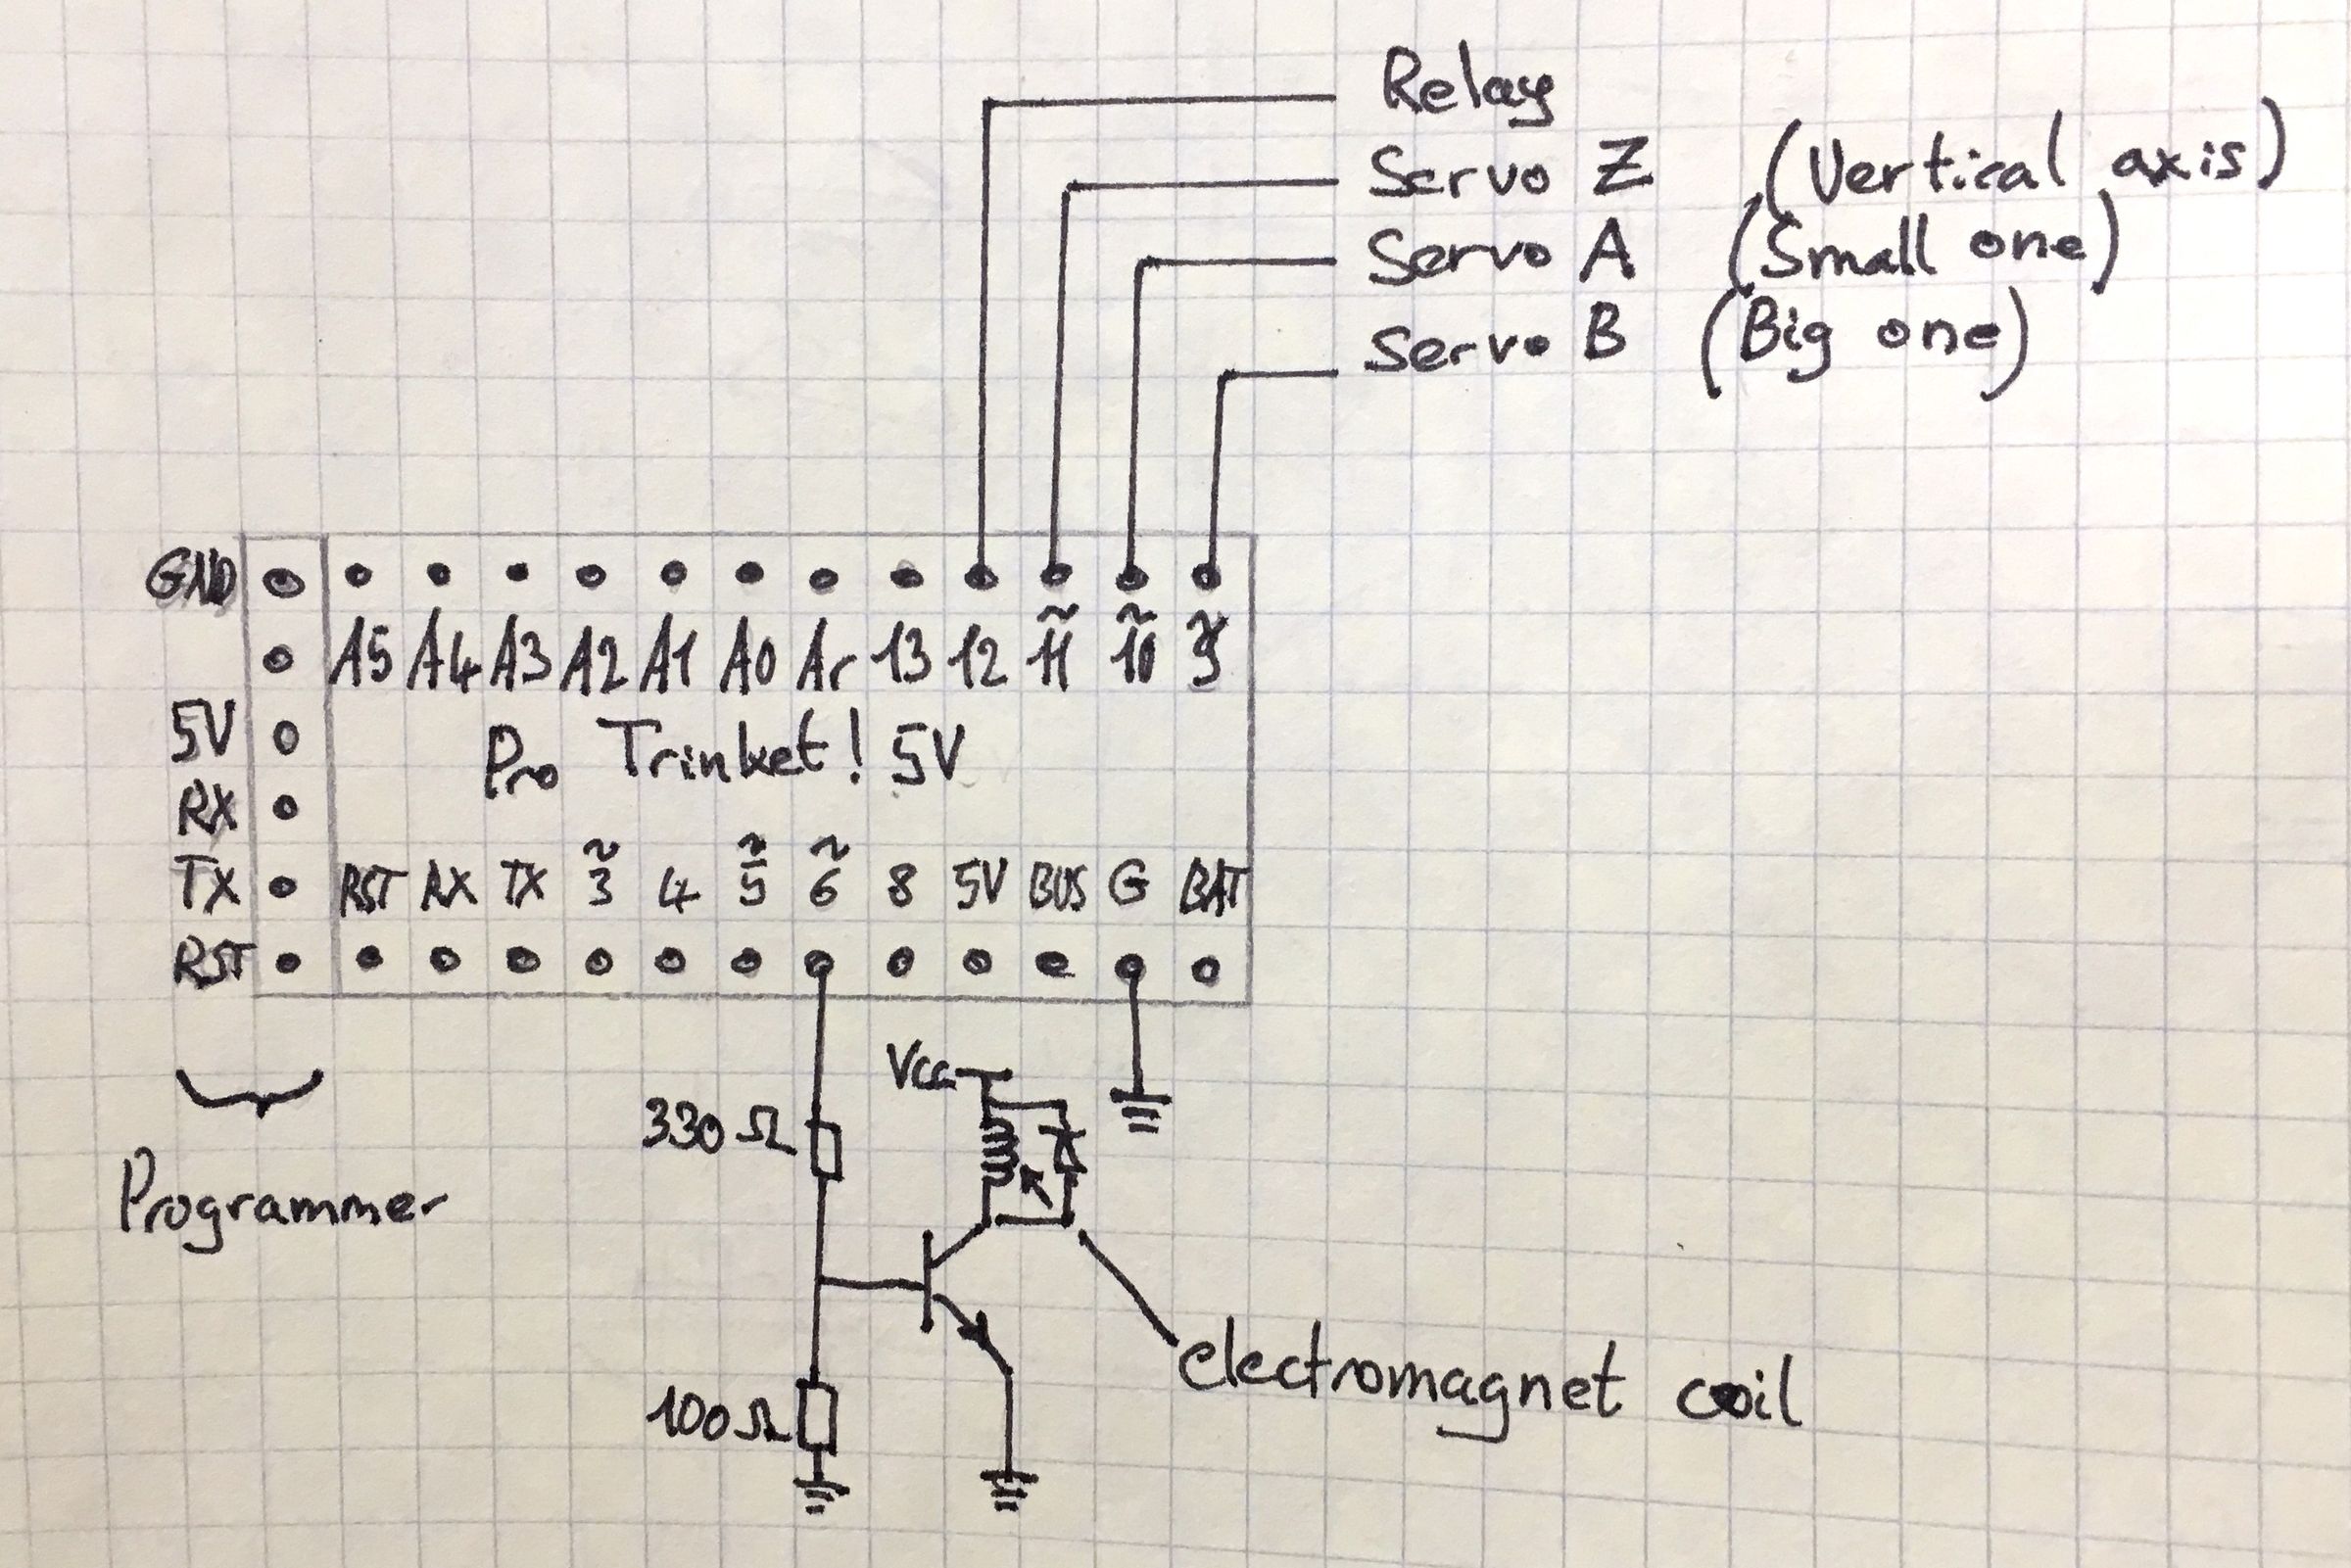 Relay
Servo Z (Vertical axis)
Servo A (Small one)
Servo B (Big one)
GND
A5 A4 A3 A2 A1 A0 Ar 13 12 ~11 ~10 ~9
5V
Pro Trinket! 5V
RX
TX
RST RX TX ~3 4 ~5 ~6 8 5V BUS G BAT
RST
Vcc
330Ω
Programmer
electromagnet coil
100Ω